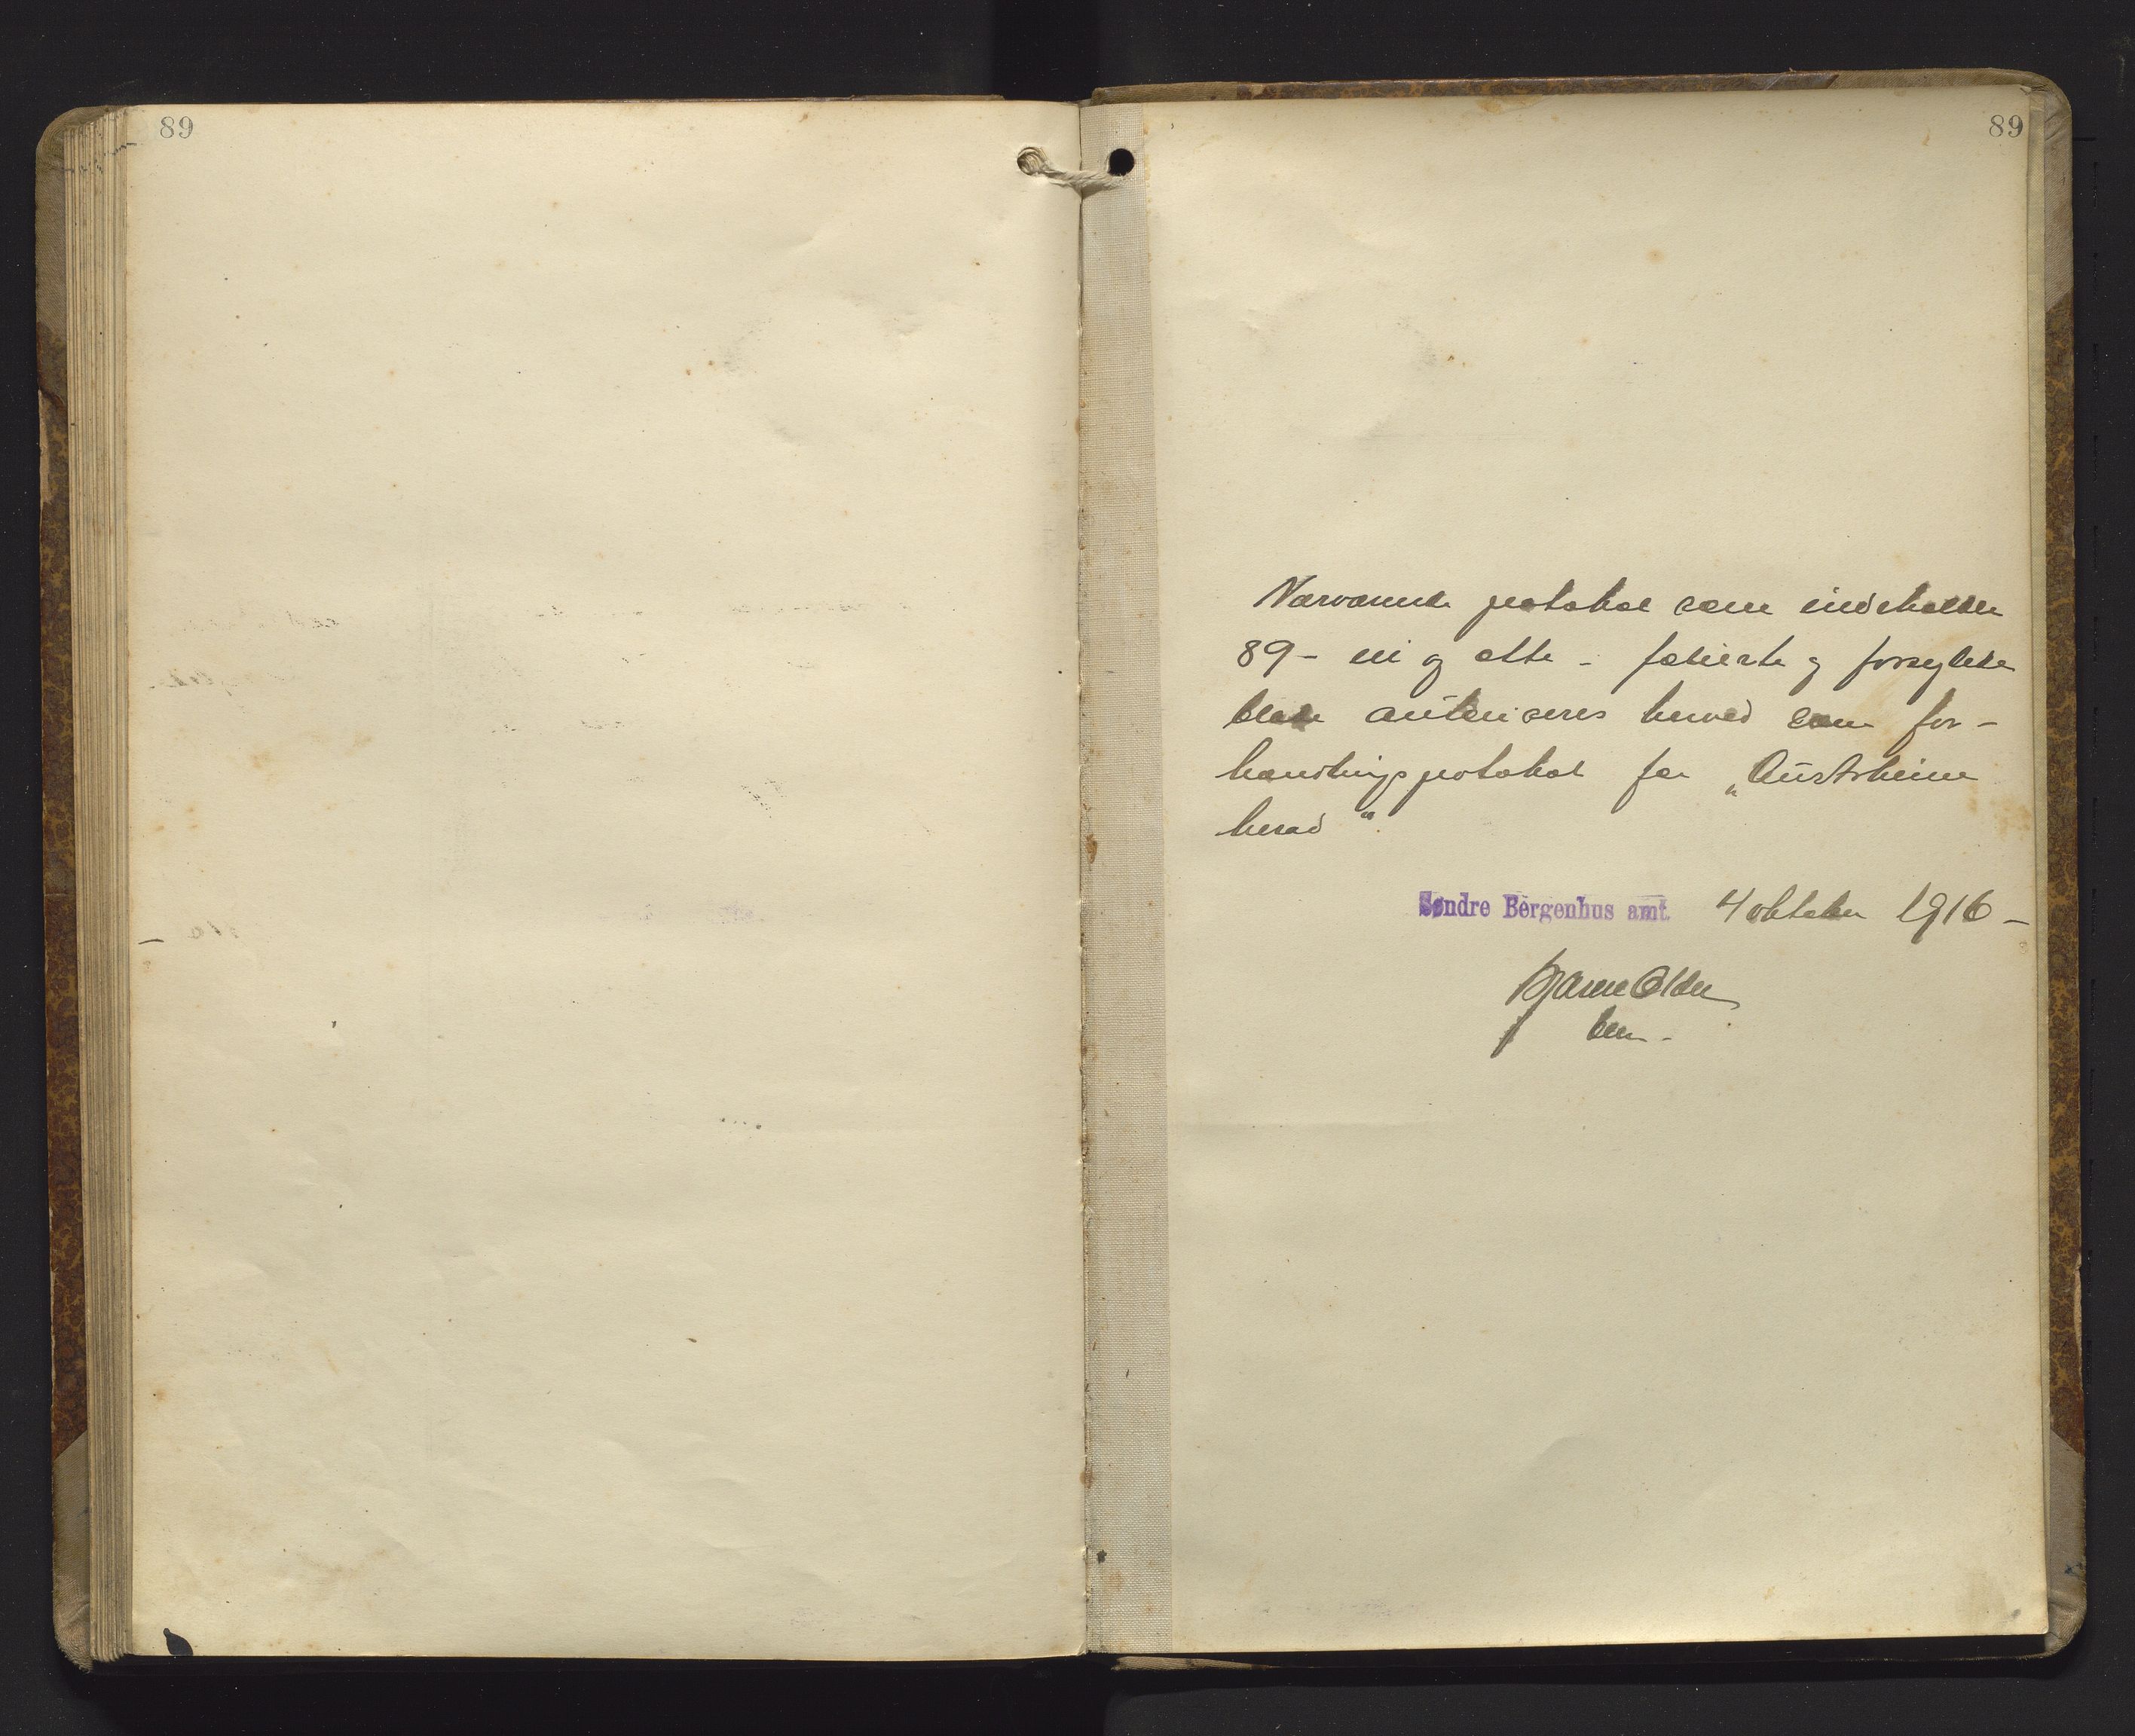 89
89
Nærværende protokol som indeholder
89 - ni og otte - folierte og forseglede
blade autoriseres herved som for-
handlingsprotokol for „Austrheim
herad“.
Søndre Bergenhus amt. 4 oktober 1916 -
Bjarne Olden